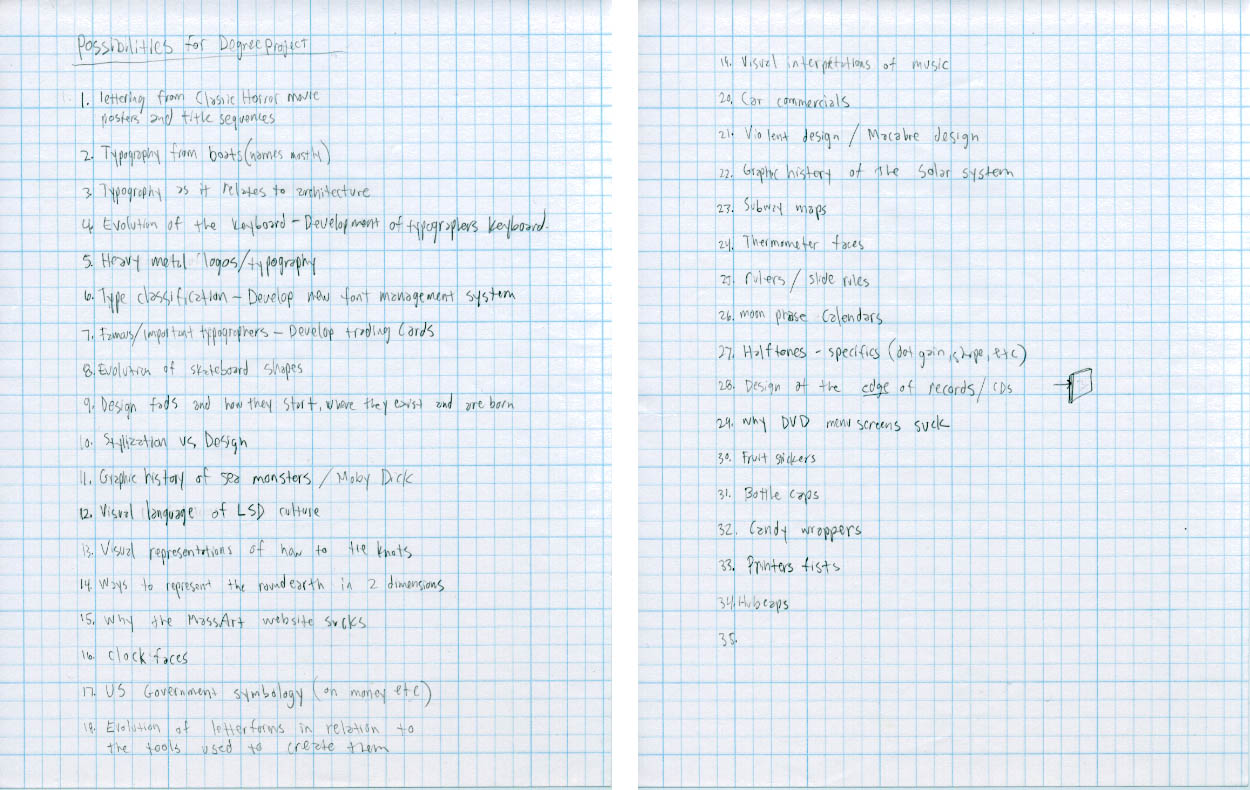 Possibilities for Degree Project
1. lettering from Classic Horror movie
posters and title sequences
2. Typography from boats (names mostly)
3. Typography as it relates to architecture
4. Evolution of the keyboard - Development of typographers keyboard.
5. Heavy metal logos/typography
6. Type classification - Develop new font management system
7. Famous/important typographers - Develop trading Cards
8. Evolution of skateboard shapes
9. Design fads and how they start, where they exist and are born
10. Stylization vs, Design
11. Graphic history of sea monsters / Moby Dick
12. Visual language of LSD culture
13. Visual representations of how to tie knots
14. Ways to represent the round earth in 2 dimensions
15. Why the MassArt website sucks
16. Clock faces
17. US Government symbology (on money etc)
18. Evolution of letterforms in relation to
the tools used to create them
19. Visual interpretations of music
20. Car commercials
21. Violent design / Macabre design
22. Graphic history of the Solar system
23. Subway maps
24. Thermometer faces
25. rulers / slide rules
26. moon phase Calendars
27. Halftones - specifics (dot gain, shape, etc)
28. Design of the edge of records / CDs
29. why DVD menu screens suck
30. Fruit stickers
31. Bottle caps
32. Candy wrappers
33. Printers fists
34. Hubcaps
35.